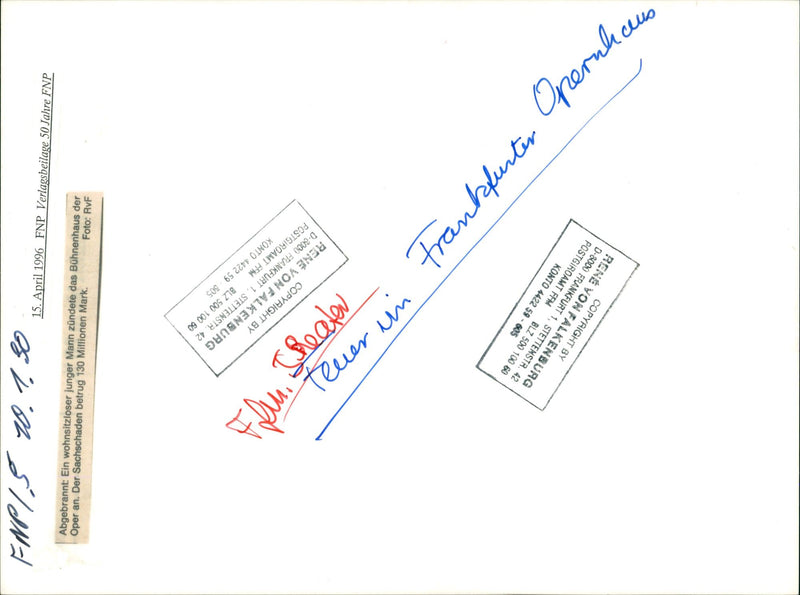 15. April 1996 FNP Verlagsbeilage 50 Jahre FNP
Abgebrannt: Ein wohnsitzloser junger Mann zündete das Bühnenhaus der
Oper an. Der Sachschaden betrug 130 Millionen Mark. Foto: RvF
FNP/.5 20.1.90
COPYRIGHT BY
RENÉ VON FALKENBURG
D-6000 FRANKFURT 1, STETTENSTR. 42
POSTGIROAMT FFM BLZ 500 100 60
KONTO 4422 59 - 605
Ffm. Theater
Feuer im Frankfurter Opernhaus
COPYRIGHT BY
RENÉ VON FALKENBURG
D-6000 FRANKFURT 1, STETTENSTR. 42
POSTGIROAMT FFM BLZ 500 100 60
KONTO 4422 59 - 605